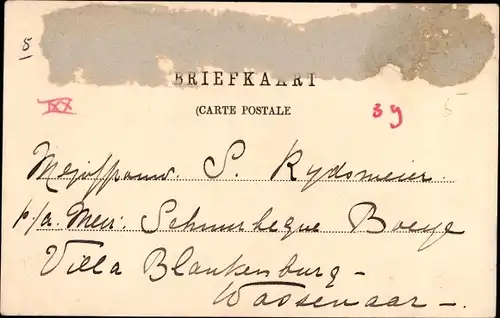 8
BRIEFKAART
(CARTE POSTALE
IXX
sy
5-
Mejuffrouw. S. Rydsmeier.
p/a. Mevr. Schuurbeque Boeye
Villa Blankenburg –
Wassenaar –.